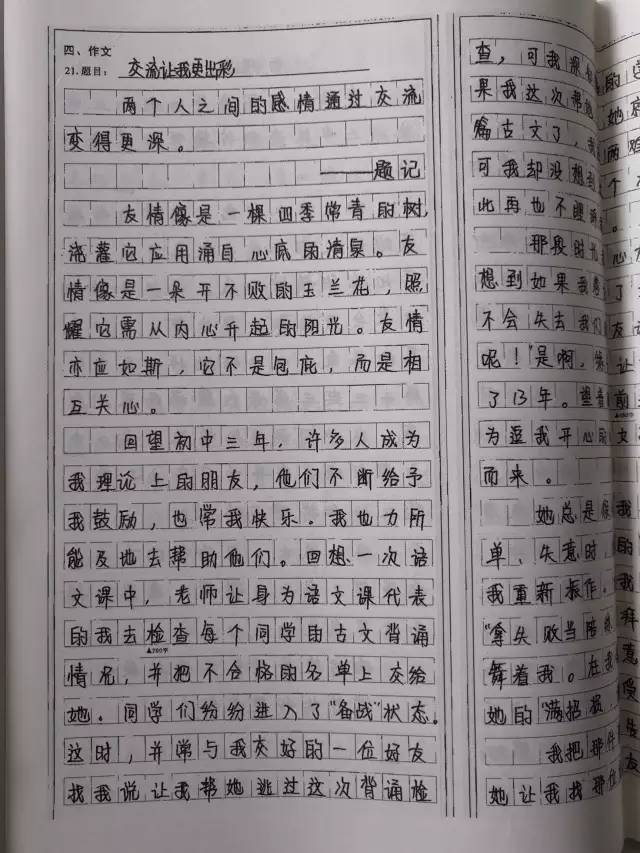 四、作文
21.题目：交流让我更出彩
两个人之间的感情通过交流
变得更深。
——题记
友情像是一棵四季常青的树，
浇灌它应用涌自心底的清泉。友
情像是一朵开不败的玉兰花，照
耀它需从内心升起的阳光。友情
亦应如斯，它不是包庇，而是相
互关心。
回望初中三年，许多人成为
我理论上的朋友，他们不断给予
我鼓励，也常我快乐。我也力所
能及地去帮助他们。回想一次语
文课中，老师让身为语文课代表
的我去检查每个同学由古文背诵
▲200字
情况，并把不合格的名单上交给
她。同学们纷纷进入了"备战"状态。
这时，并常与我交好的一位好友
找我说让我帮她逃过这次背诵检
查，可我深
果我这次帮
篇古文了，
可我却没想
此再也不
那段时光
想到如果我
不会失去我们
呢！"是啊，
了13年。望着
为逗我开心
而来。
她总是
单、失意时，
我重新振作。
"拿失败当陪
舞着我。在我
她的"满招损，
我把那
她让我找那位